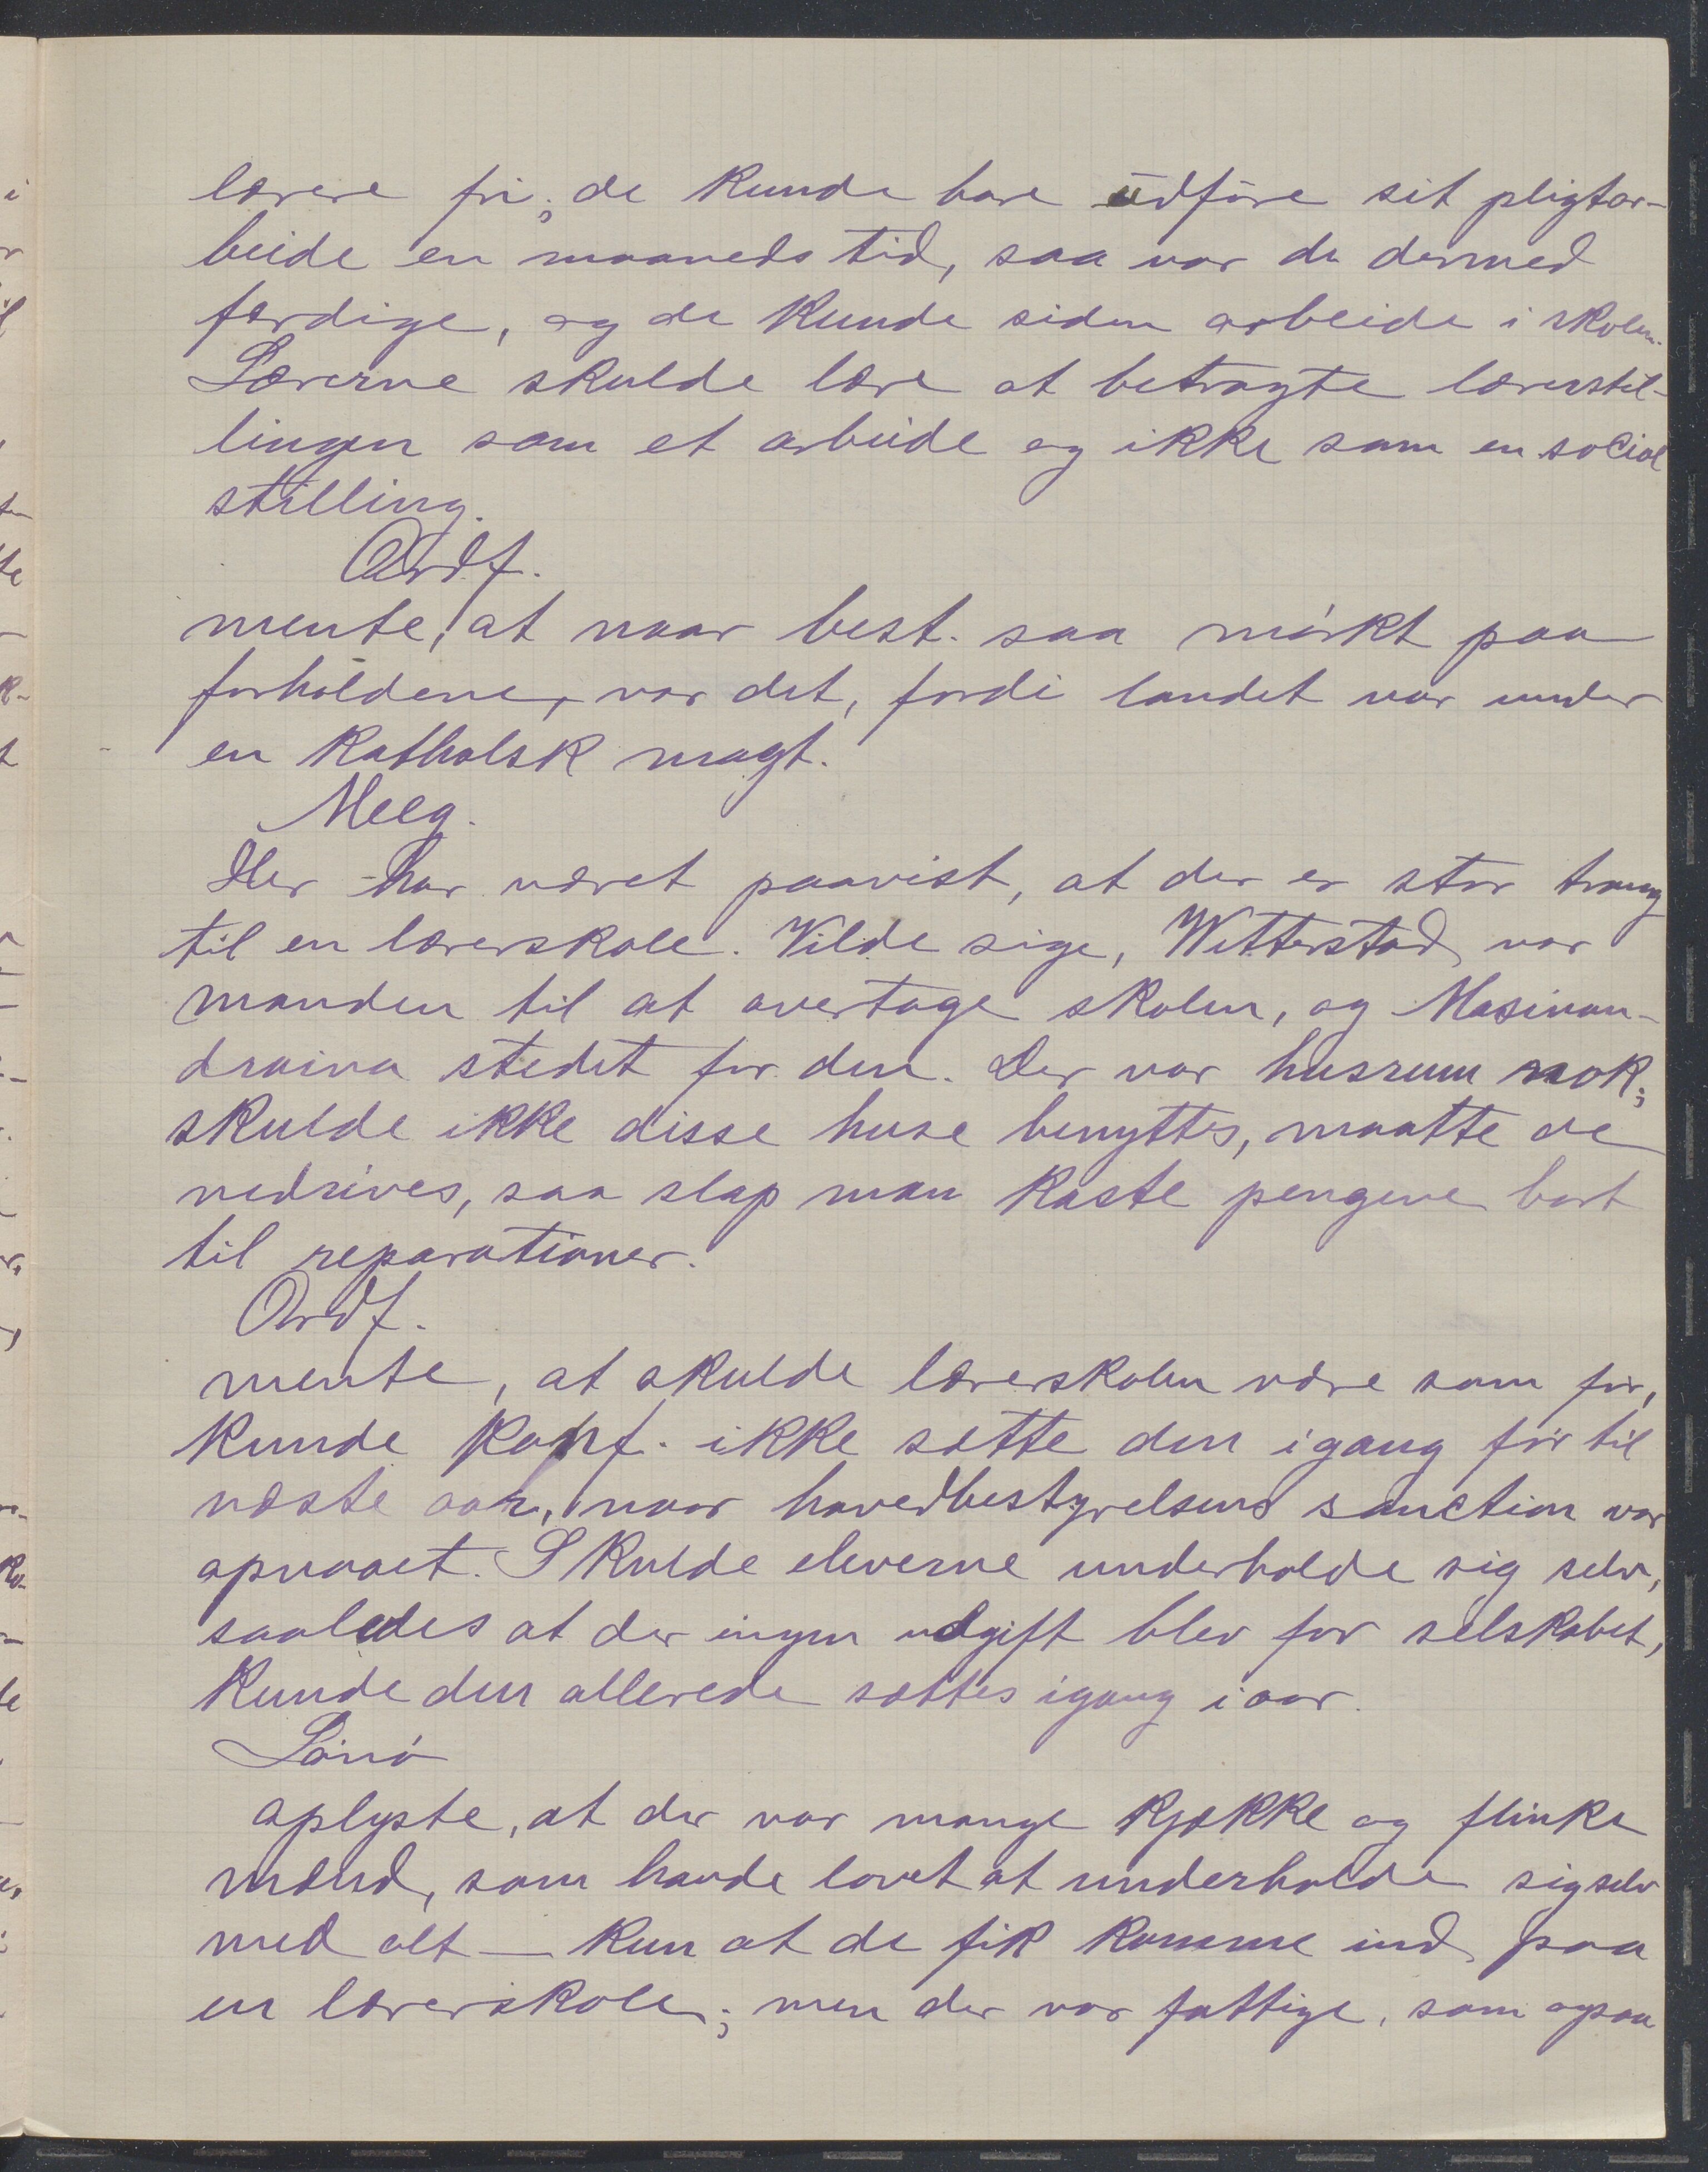 lærere fri; de kunde bare udføre sit pligtar-
beide en maaneds tid, saa var de dermed
færdige, og de kunde siden arbeide i skolen.
Lærerne skulde lære at betragte lærerstil-
lingen som et arbeide og ikke som en social
stilling.
Ordf.
mente, at naar best. saa mørkt paa
forholdene, var det, fordi landet var under
en katholsk magt.
Meeg.
Der har været paavist, at der er stor trang
til en lærerskole. Vilde sige, Wetterstad var
manden til at overtage skolen, og Masinan-
draina stedet for den. Der var husrum nok;
skulde ikke disse huse benyttes, maatte de
nedrives, saa slap man kaste pengene bort
til reparationer.
Ordf.
mente, at skulde lærerskolen være som før,
kunde konf. ikke sætte den igang før til
næste aar, naar hovedbestyrelsens sanction var
opnaaet. Skulde eleverne underholde sig selv,
saaledes at der ingen udgift blev for selskabet,
kunde den allerede sættes igang i aar.
Lønø
oplyste, at der var mange kjække og flinke
mænd, som havde lovet at underholde sig selv
med alt — kun at de fik komme ind paa
en lærerskole; men der var fattige, som ogsaa